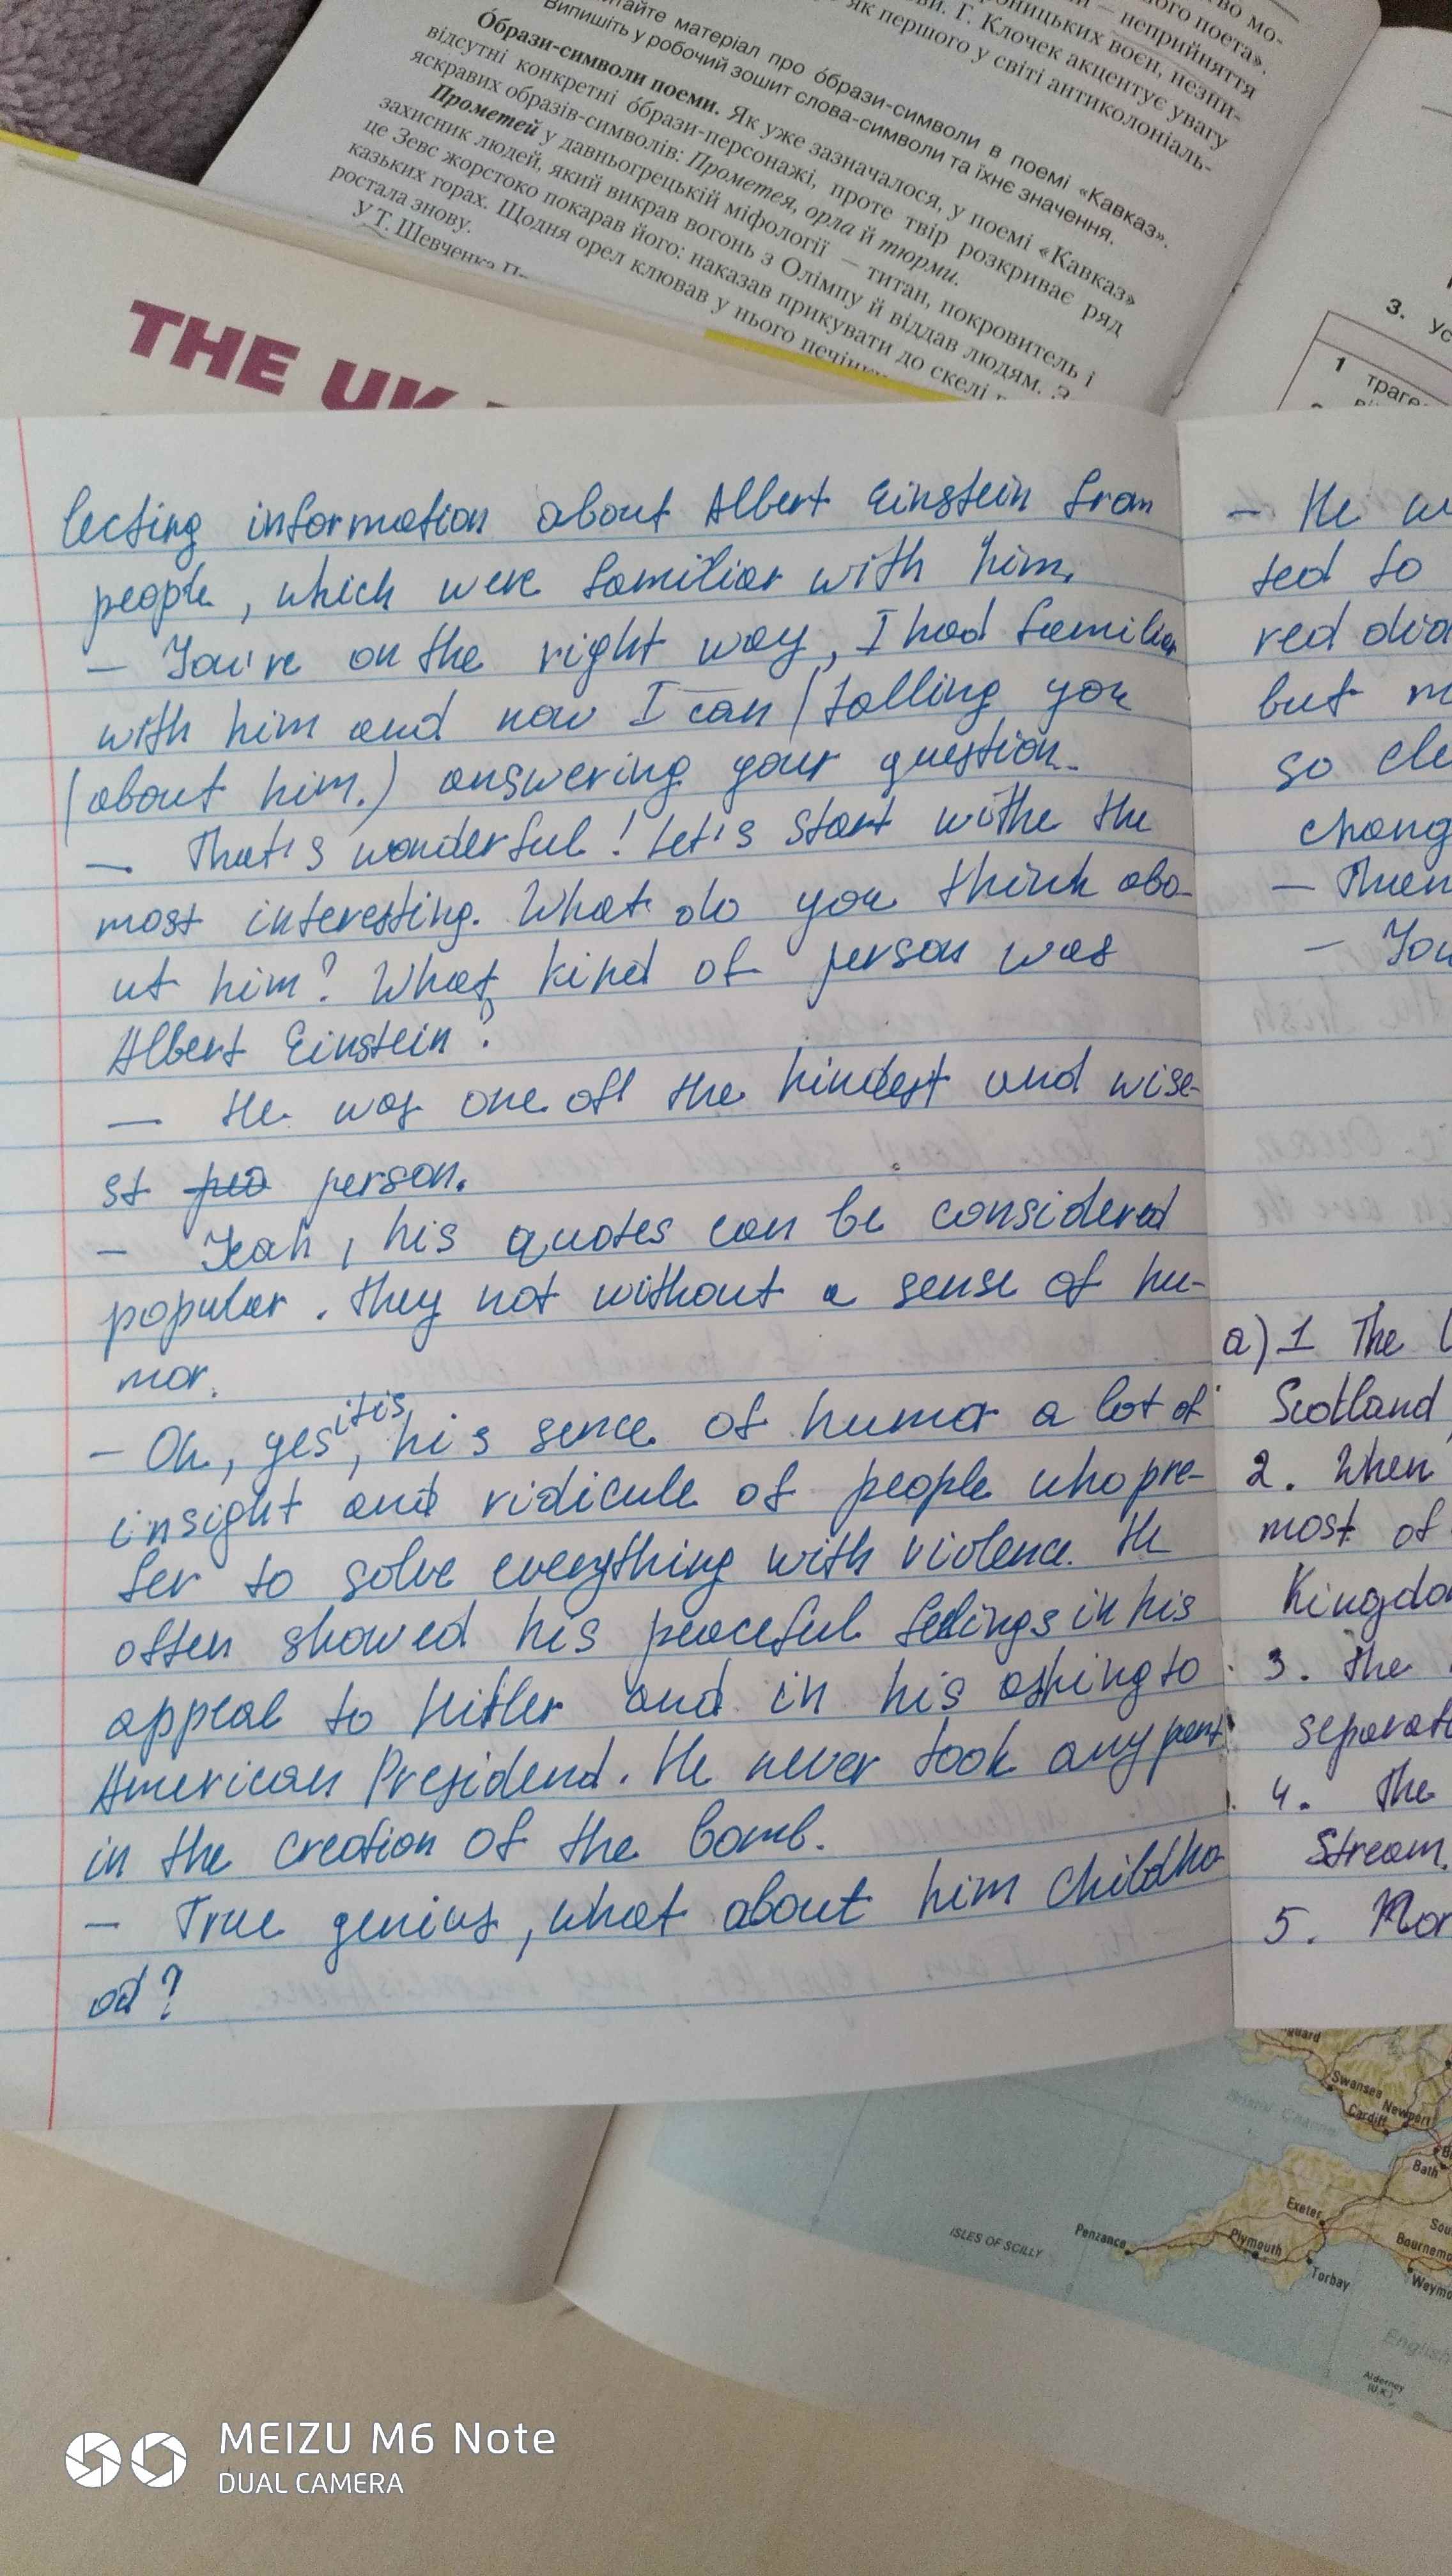 во мо-
ого поета».
— неприйняття
роницьких воєн, незни-
ви. Г. Клочек акцентує увагу
як першого у світі антиколоніаль-
итайте матеріал про образи-символи в поемі «Кавказ».
Випишіть у робочий зошит слова-символи та їхнє значення.
О́брази-символи поеми. Як уже зазначалося, у поемі «Кавказ»
відсутні конкретні о́брази-персонажі, проте твір розкриває ряд
яскравих образів-символів: Прометея, орла й тюрми.
Прометей у давньогрецькій міфології — титан, покровитель і
захисник людей, який викрав вогонь з Олімпу й віддав людям. З
це Зевс жорстоко покарав його: наказав прикувати до скелі
казьких горах. Щодня орел клював у нього печінк
ростала знову.
У Т. Шевченка П
3. Ус
1 траге
THE UK
lecting information about Albert Einstein from
people, which were familiar with him.
— You're on the right way, I had familiar
with him and now I can (talling you
(about him.) answering your question.
— That's wonderful! Let's start withe the
most interesting. What do you think abo-
ut him? What kind of person was
Albert Einstein?
— He was one off the kindest and wise-
st person.
— Yeah, his quotes can be considered
popular. they not without a sense of hu-
mor.
— Oh, yes it is, his sence of humor a lot of
insight and ridicule of people who pre-
fer to solve everything with violence. He
often showed his peaceful feelings in his
appeal to Hitler and in his asking to
American Presidend. He never took any part
in the creation of the bomb.
— True genius, what about him childho
od?
— He w
ted to
red dia
but m
so cle
chang
— Then
— You
a) 1 The
Scotland
2. When
most of
Kingdo
3. The
separat
4. The
Stream.
5. Mor
Swansea
Newport
Cardiff
Bath
Exeter
ISLES OF SCILLY
Penzance
Plymouth
Bournemo
Torbay
Weymo
English
Alderney
(U.K.)
MEIZU M6 Note
DUAL CAMERA